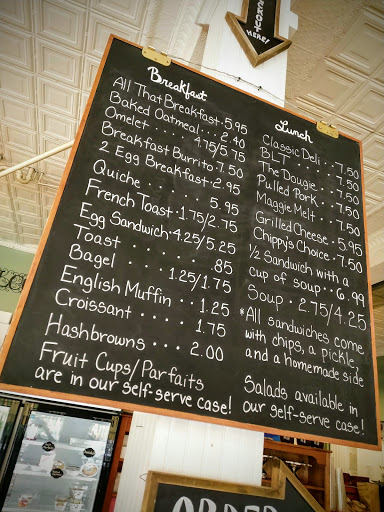 HERE!
Breakfast
All That Breakfast · 5.95
Baked Oatmeal . . . 2.40
Omelet . . . . 4.75/5.75
Breakfast Burrito · 7.50
2 Egg Breakfast · 2.95
Quiche . . . . 5.95
French Toast · 1.75/2.75
Egg Sandwich · 4.25/5.25
Toast . . . . .85
Bagel . . . . 1.25/1.75
English Muffin . . 1.25
Croissant . . . 1.75
Hashbrowns . . . 2.00
Fruit Cups/Parfaits
are in our self-serve case!
Lunch
Classic Deli . . 7.50
BLT . . . . . 7.50
The Dougie . . . 7.50
Pulled Pork . . 7.50
Maggie Melt . . 7.50
Grilled Cheese · 5.95
Chippy's Choice · 7.50
1/2 Sandwich with a
cup of soup . . 6.99
Soup · 2.75/4.25
*All sandwiches come
with chips, a pickle,
and a homemade side
Salads available in
our self-serve case!
ORDER